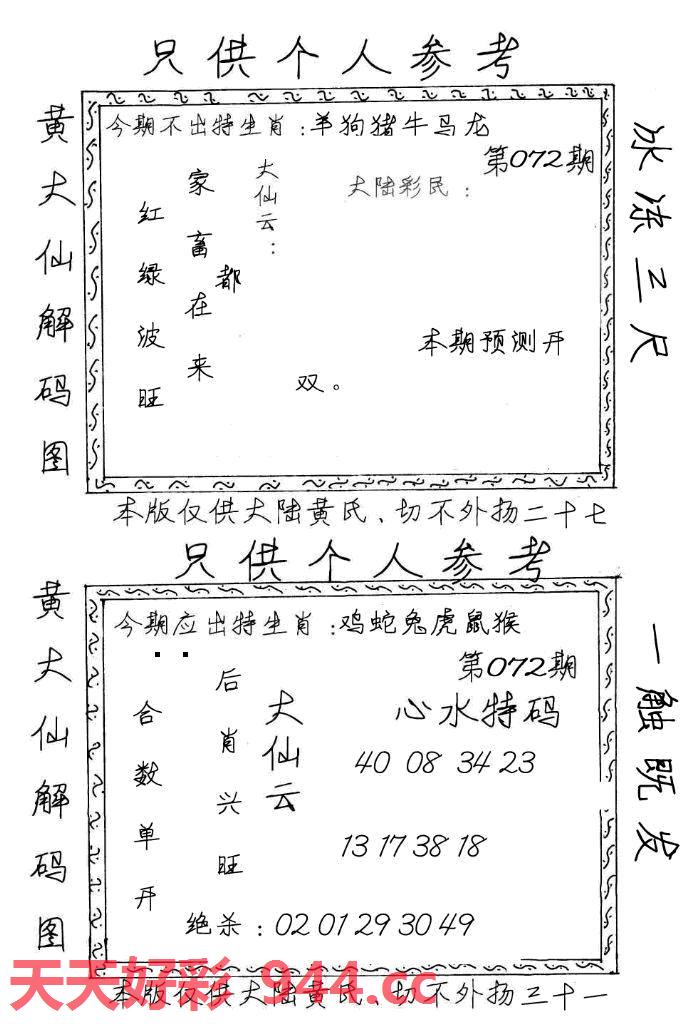 只供个人参考
黄大仙解码图
今期不出特生肖：羊狗猪牛马龙
第072期
大陆彩民：
大仙云：
家畜都在来
红绿波旺
本期预测开
双。
冰冻三尺
本版仅供大陆黄氏、切不外扬二十七
只供个人参考
黄大仙解码图
今期应出特生肖：鸡蛇兔虎鼠猴
第072期
心水特码
大仙云
后肖兴旺
合数单开
40 08 34 23
13 17 38 18
绝杀：02 01 29 30 49
一触既发
天天好彩 944.cc
本版仅供大陆黄氏、切不外扬三十一